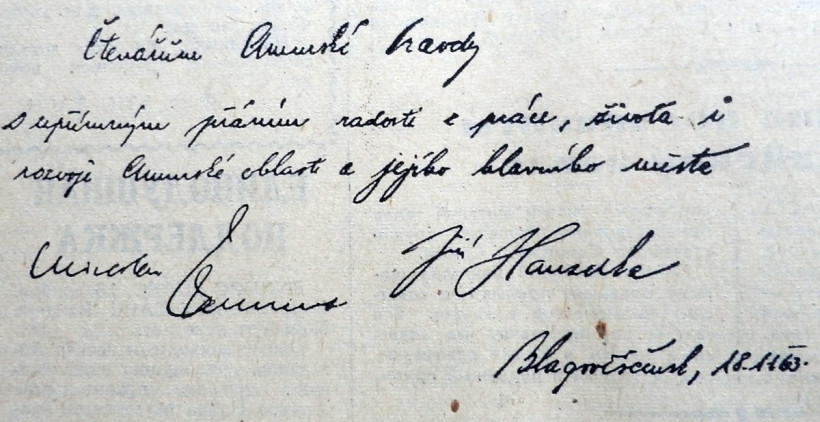 Čtenářům Amurské Pravdy
s upřímným přáním radosti z práce, života i
rozvoje Amurské oblasti a jejího hlavního města
Miroslav Zikmund Jiří Hanzelka
Blagověščensk, 18.11.63.